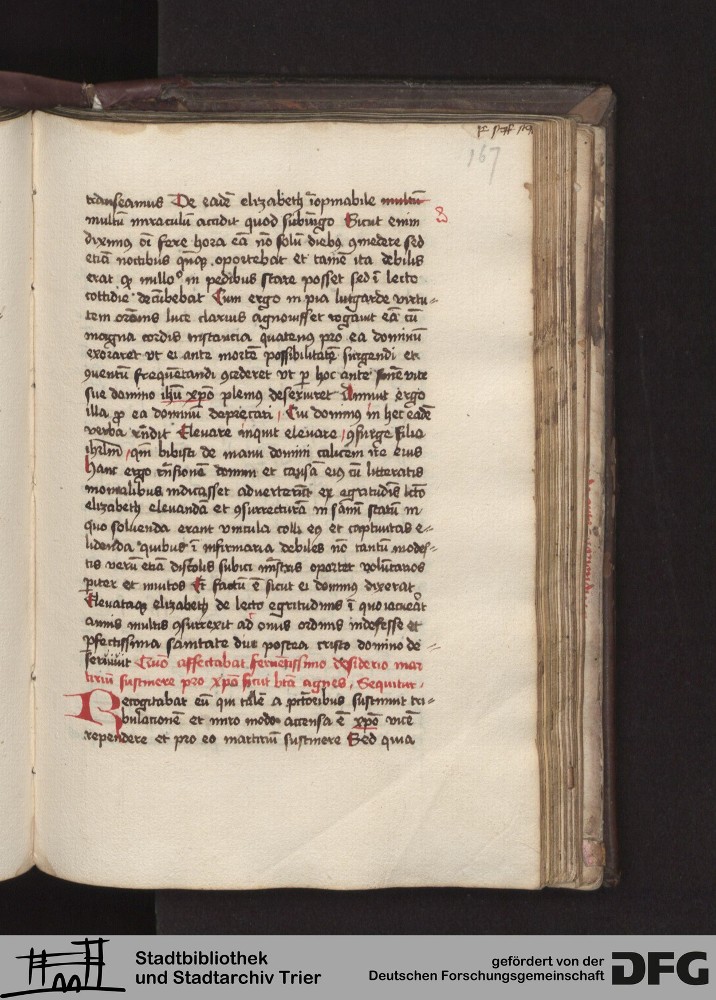 167
transeamus De eadē elizabeth īopinabile multū
multū miraculū accidit quod subiūgo Sicut enim
diximus oī fere hora eā nō solū diebꝫ ꝯmedere sed
etiā noctibus quoqꝫ oportebat et tamē ita debilis
erat ꝙ nullo in pedibus stare posset sed ī lecto
cottidie decūbebat Cum ergo in pia lutgarde virtu-
tem ordinis luce clarius agnouisset rogauit eā cū
magna cordis instancia quatenꝫ pro ea dominū
exoraret vt ei ante mortē possibilitatē surgendi et
ꝯuentū frequētandi ꝯcederet vt ꝑ hoc ante finē vite
sue domino ihū xp̄o plenius deseruiret Annuit ergo
illa ꝓ ea dominū deprecari Cui dominꝰ in hec eadē
verba rn̄dit Eleuare inquit eleuare ꝯsurge filia
ihrl̄m qm̄ bibisti de manu domini calicem ire eius
Hanc ergo rn̄sionē domini et causā eiꝰ cū litteratis
monialibus indicasset aduerterūt ex egritudīs lecto
elizabeth eleuandā et ꝯsurrecturā in sanū statū in
quo soluenda erant vincula colli eꝰ et captiuitas e-
lidenda quibus ī infirmaria debiles nō tantū modes-
tis verū etiā discolis subici mīstris oportet volūtarios
ꝑiter et inuitos Et factū ē sicut ei dominꝰ dixerat
Eleuataqꝫ elizabeth de lecto egritudinis ī quo iacuerat
annis multis ꝯsurrexit ad onus ordinis indefesse et
ꝑfectissima sanitate diu postea cristo domino de-
seruiuit Quō affectabat feruētissimo desiderio mar
tiriū sustinere pro xp̄o sicut btā agnes Sequitur
Recogitabat eū qui talē a pctōribus sustinuit tri-
bulationē et miro modo accensa ē xp̄o vicē
rependere et pro eo martiriū sustinere Sed quia
Stadtbibliothek
und Stadtarchiv Trier
gefördert von der
Deutschen Forschungsgemeinschaft
DFG